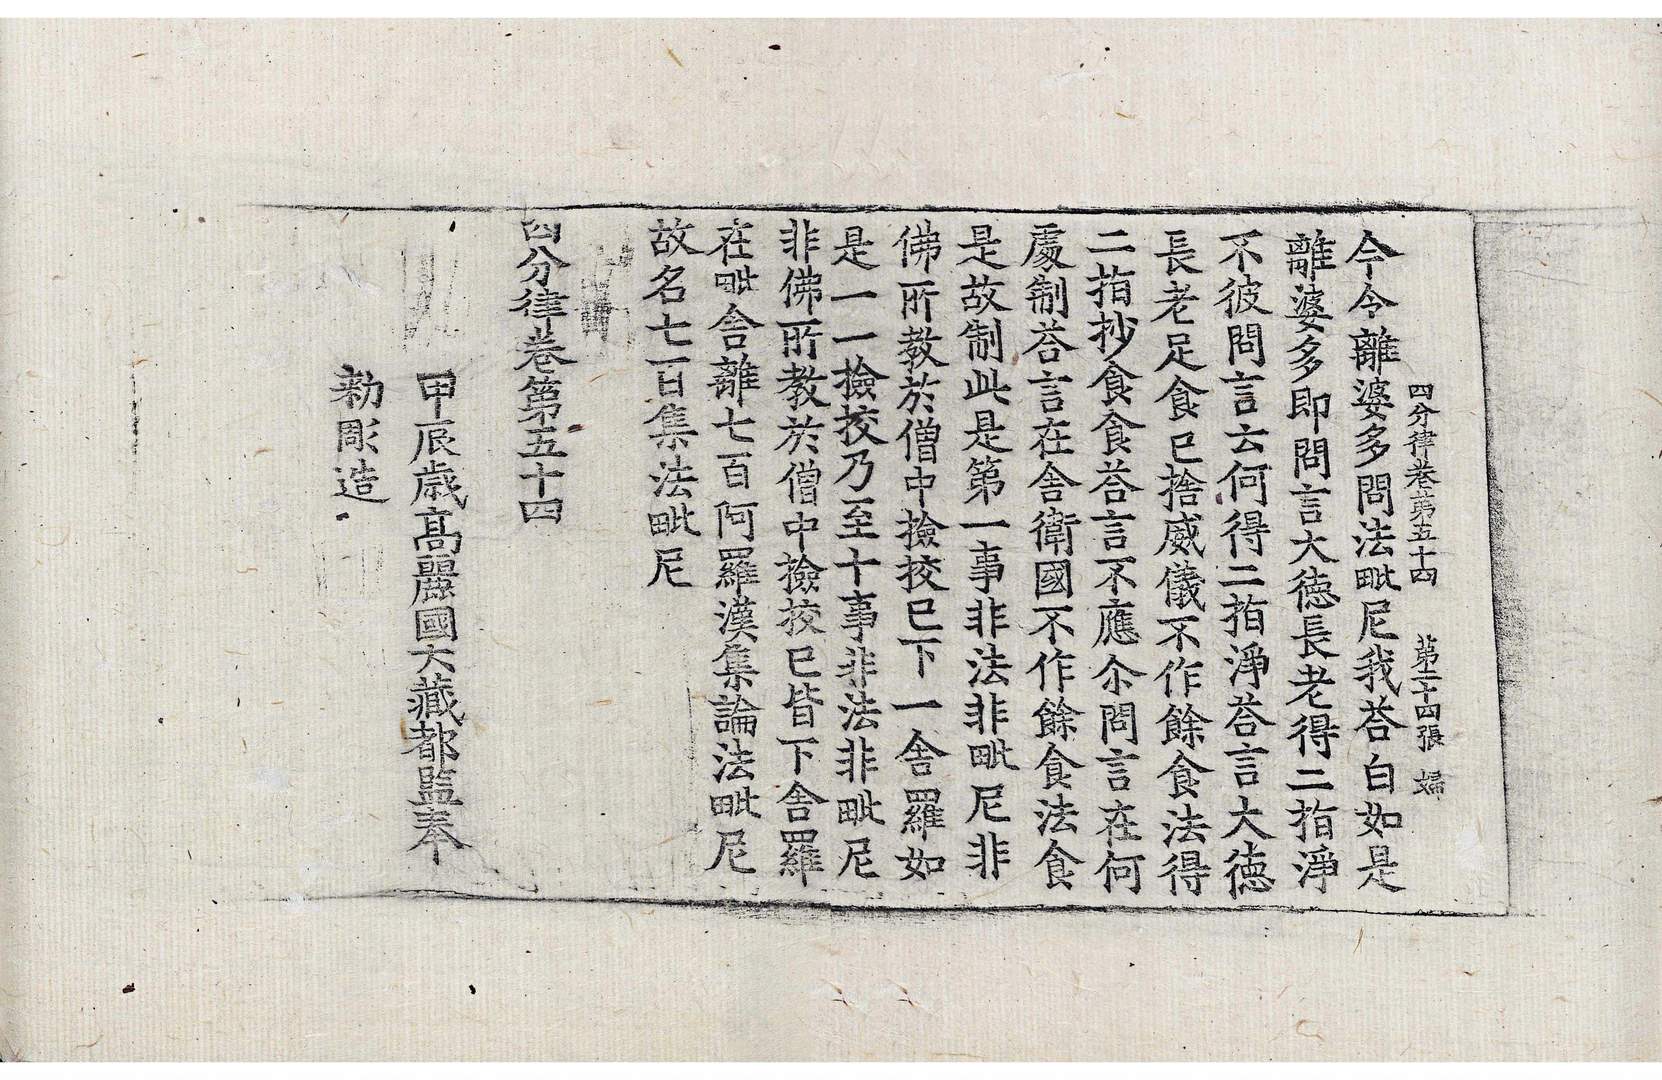 四分律卷第五十四 第二十四張 婦
今令離婆多問法毗尼我荅白如是
離婆多即問言大德長老得二指淨
不彼問言云何得二指淨荅言大德
長老足食已捨威儀不作餘食法得
二指抄食食荅言不應尒問言在何
處制荅言在舍衛國不作餘食法食
是故制此是第一事非法非毗尼非
佛所教於僧中撿挍已下一舍羅如
是一一撿挍乃至十事非法非毗尼
非佛所教於僧中撿挍已皆下舍羅
在毗舍離七百阿羅漢集論法毗尼
故名七百集法毗尼
四分律卷第五十四
甲辰歲高麗國大藏都監奉
勑彫造